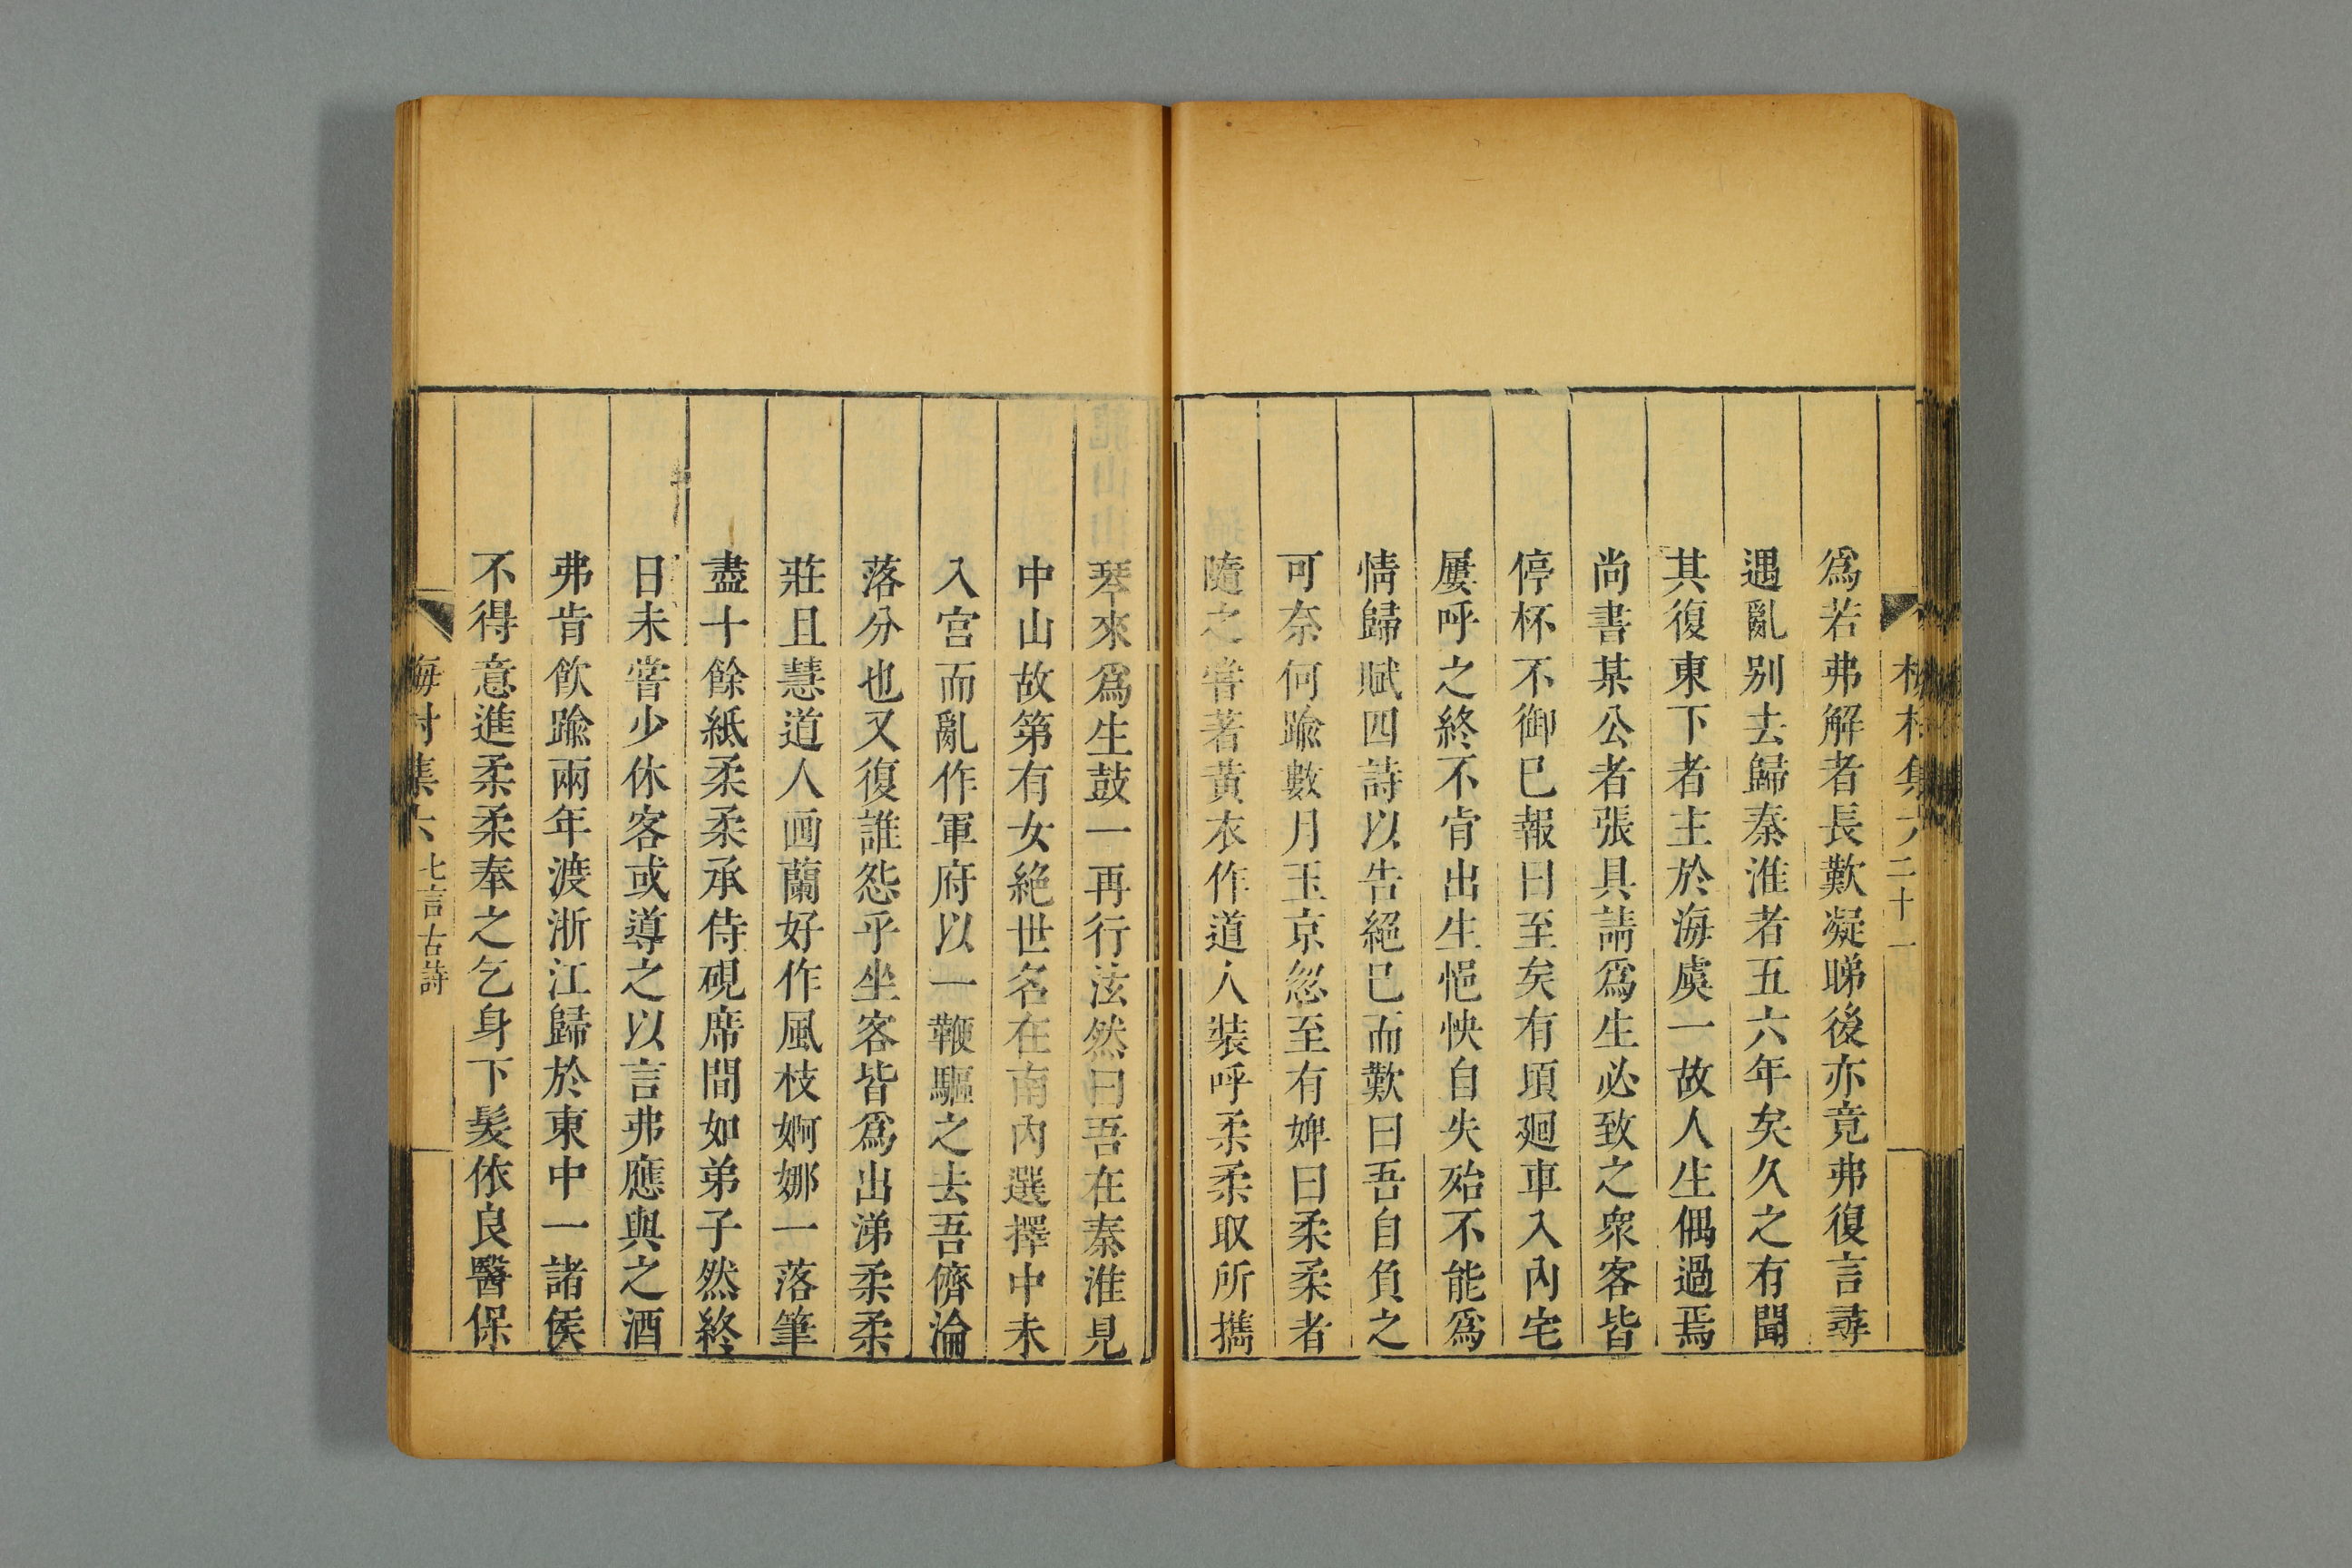 爲若弗解者長歎凝睇後亦竟弗復言尋
遇亂别去歸秦淮者五六年矣久之有聞
其復東下者主於海虞一故人生偶過焉
尚書某公者張具請爲生必致之衆客皆
停杯不御已報曰至矣有頃廻車入內宅
屢呼之終不肯出生悒怏自失殆不能爲
情歸賦四詩以告絕已而歎曰吾自負之
可奈何踰數月玉京忽至有婢曰柔柔者
隨之嘗著黃衣作道人裝呼柔柔取所攜
琴來爲生鼓一再行泫然曰吾在秦淮見
中山故第有女絶世名在南內選擇中未
入宮而亂作軍府以一鞭驅之去吾儕淪
落分也又復誰怨乎坐客皆爲出涕柔柔
莊且慧道人画蘭好作風枝婀娜一落筆
盡十餘紙柔柔承侍硯席間如弟子然終
日未嘗少休客或導之以言弗應與之酒
弗肯飲踰兩年渡浙江歸於東中一諸侯
不得意進柔柔奉之乞身下髮依良醫保
集六 二十一
海村集六 七言古詩